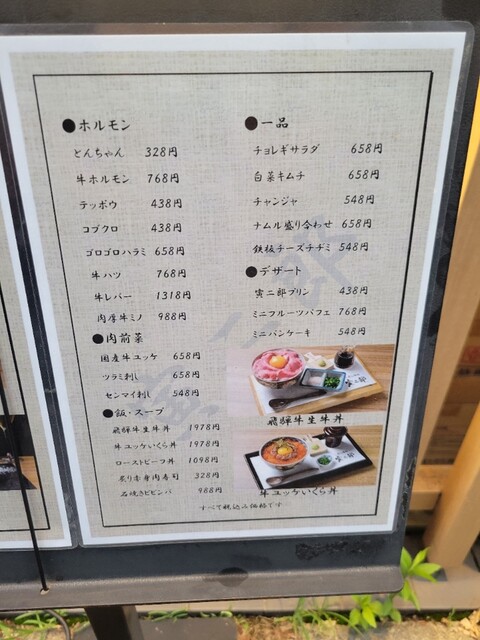 ●ホルモン
とんちゃん 328円
牛ホルモン 768円
テッポウ 438円
コブクロ 438円
ゴロゴロハラミ 658円
牛ハツ 768円
牛レバー 1318円
肉厚牛ミノ 988円
●肉前菜
国産牛ユッケ 658円
ツラミ刺し 658円
センマイ刺し 548円
●飯・スープ
飛騨牛生牛丼 1978円
牛ユッケいくら丼 1978円
ローストビーフ丼 1098円
炙り赤身肉寿司 328円
石焼きビビンバ 988円
●一品
チョレギサラダ 658円
白菜キムチ 658円
チャンジャ 548円
ナムル盛り合わせ 658円
鉄板チーズチヂミ 548円
●デザート
寅二郎プリン 438円
ミニフルーツパフェ 768円
ミニパンケーキ 548円
飛騨牛生牛丼
牛ユッケいくら丼
すべて税込み価格です